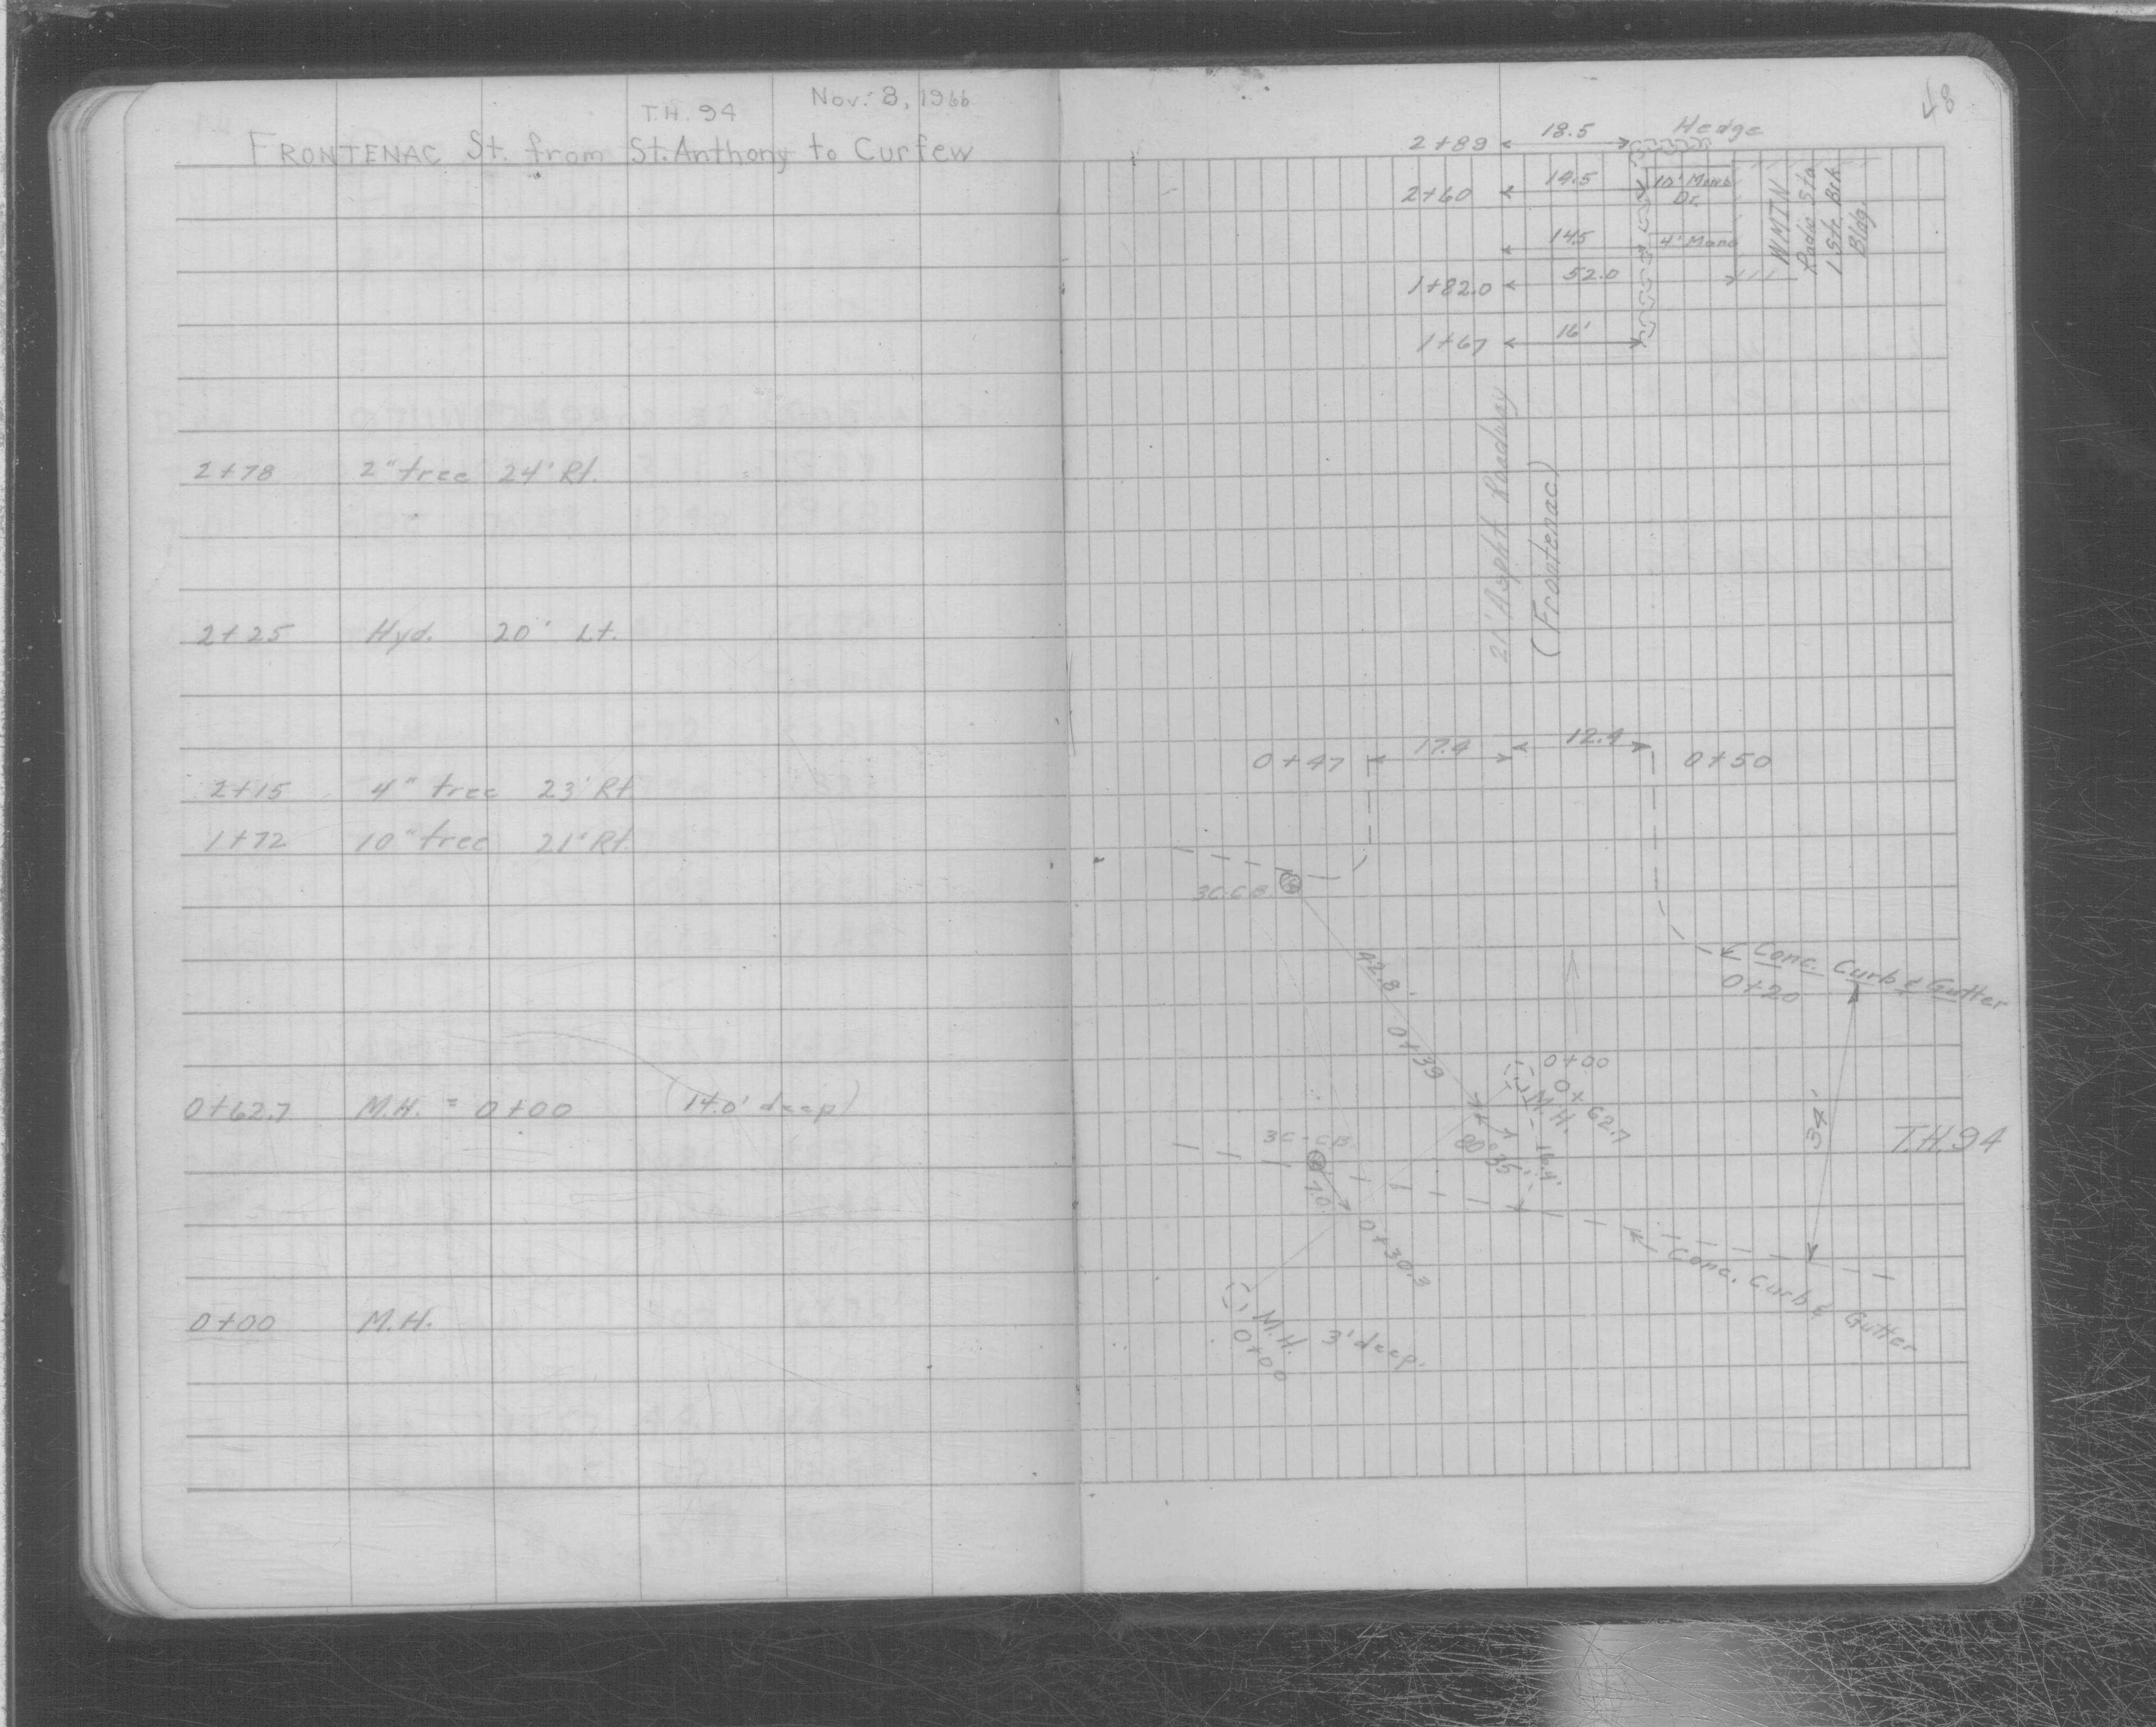 T.H. 94
Nov. 8, 1966
FRONTENAC St. from St. Anthony to Curfew
2+78 2" tree 24' Rt.
2+25 Hyd. 20' Lt.
2+15 4" tree 23' Rt
1+72 10" tree 21' Rt.
0+62.7 M.H. = 0+00 (14.0' deep)
0+00 M.H.
48
2+89 18.5 Hedge
2+60 14.5 10' Mono Dr.
14.5 4' Mono
1+82.0 52.0
1+67 16'
WMIN
Radio Sta
1 Sty. Brk
Bldg.
21' Asphlt Roadway
(Frontenac)
0+47 17.4 12.4 0+50
3C.C.B.
Conc. Curb & Gutter
0+20
42.8'
0+39
0+00
M.H.
0+62.7
80°35'
3C-CB
1.0'
0+30.3
34'
T.H.94
Conc. Curb & Gutter
M.H. 3' deep.
0+00